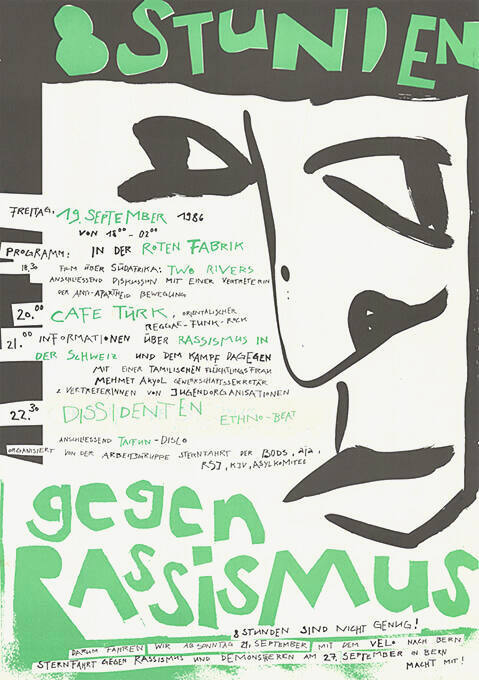 8 STUNDEN
FREITAG, 19. SEPTEMBER 1986
VON 18⁰⁰ - 02⁰⁰
PROGRAMM: IN DER ROTEN FABRIK
18.30 FILM ÜBER SÜDAFRIKA: TWO RIVERS
ANSCHLIESSEND DISKUSSION MIT EINER VERTRETERIN
DER ANTI-APARTHEID BEWEGUNG
20.00 CAFE TÜRK, ORIENTALISCHER
REGGAE-FUNK-ROCK
21.00 INFORMATIONEN ÜBER RASSISMUS IN
DER SCHWEIZ UND DEM KAMPF DAGEGEN
MIT EINER TAMILISCHEN FLÜCHTLINGSFRAU
MEHMET AKYOL GEWERKSCHAFTSSEKRETÄR
2 VERTRETERINNEN VON JUGENDORGANISATIONEN
22.30 DISSIDENTEN ETHNO-BEAT
ANSCHLIESSEND TAIFUN-DISCO
ORGANISIERT VON DER ARBEITSGRUPPE STERNFAHRT DER BODS,
RSJ, KJV, ASYLKOMITEE
gegen
RASSISMUS
8 STUNDEN SIND NICHT GENUG!
DARUM FAHREN WIR AB SONNTAG 21. SEPTEMBER MIT DEM VELO NACH BERN
STERNFAHRT GEGEN RASSISMUS UND DEMONSTRIEREN AM 27. SEPTEMBER IN BERN
MACHT MIT!